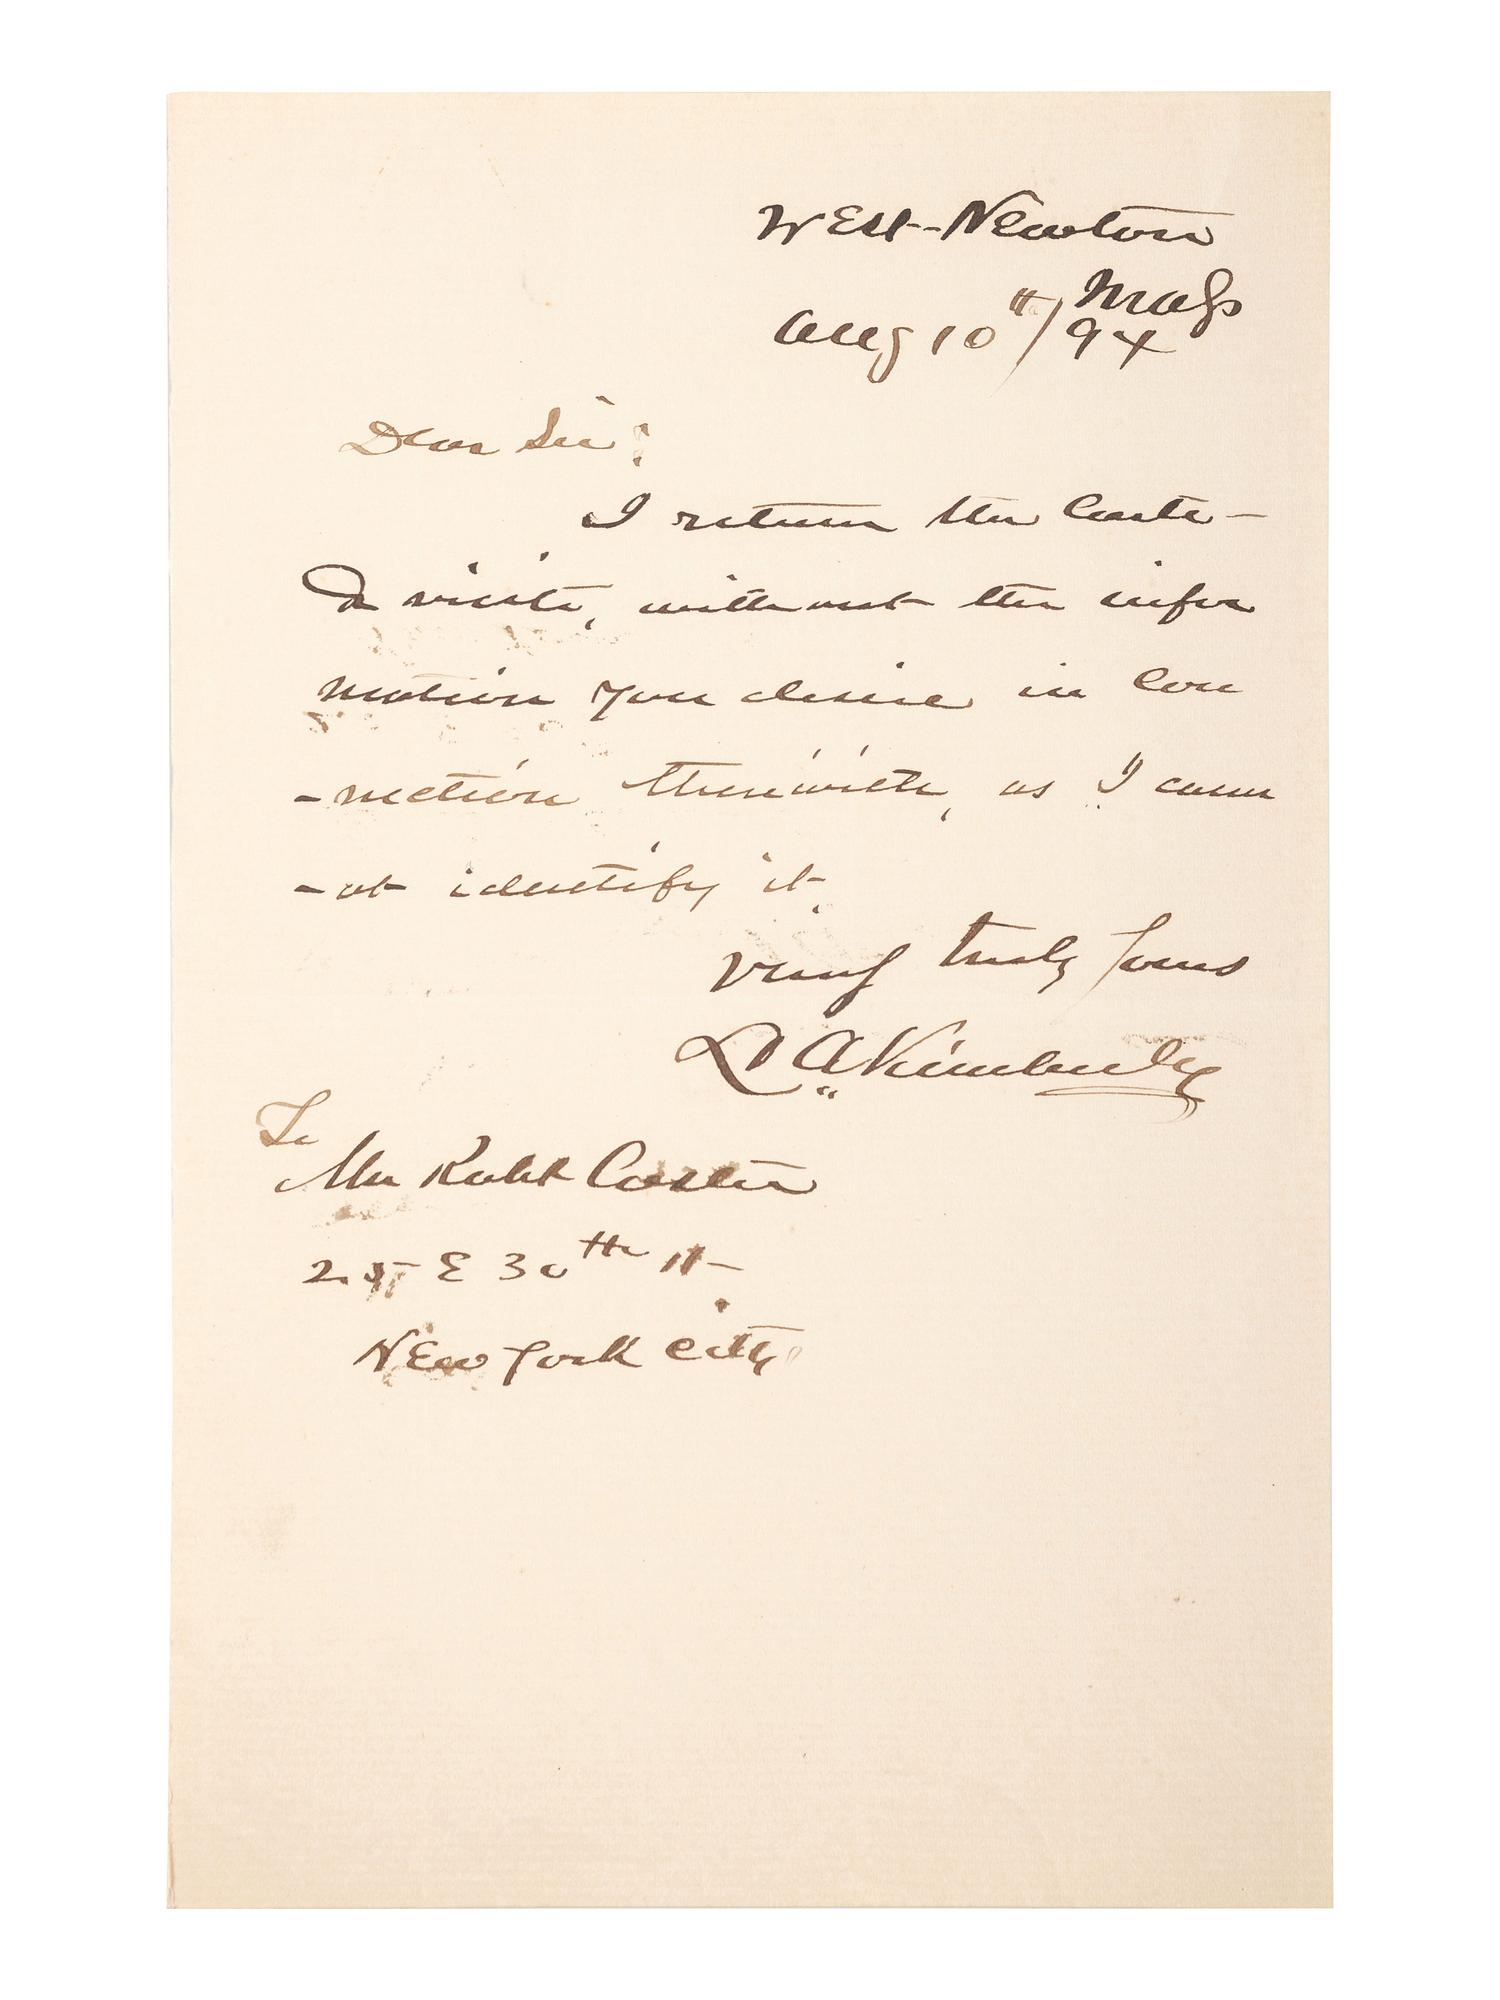 West-Newton
Mass
Aug 10th/94
Dear Sir:
I return the Carte-
d visite, without the infor
mation you desire in Con
-nection therewith, as I cann
-ot identify it.
Very truly Yours
L. A. Kimberly
To
Mr Robt Coster
25 E 30th St-
New York City